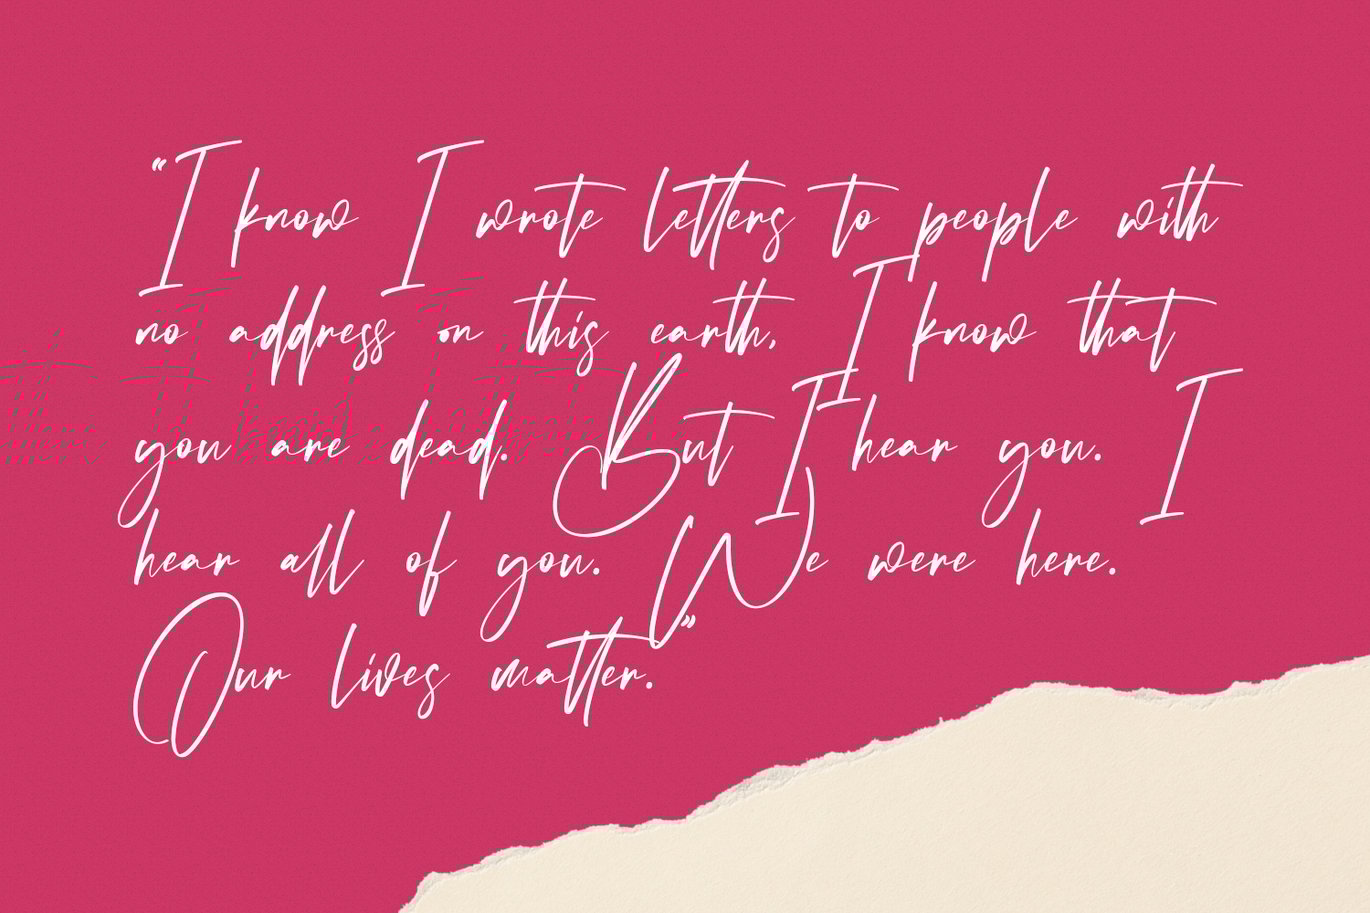 “I know I wrote letters to people with
no address on this earth, I know that
you are dead. But I hear you. I
hear all of you. We were here.
Our lives matter.”